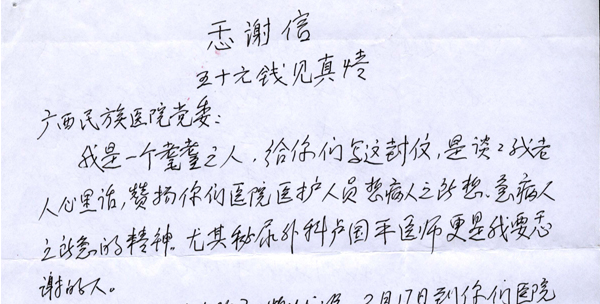 感谢信
五十元钱见真情
广西民族医院党委:
我是一个耄耋之人,给你们写这封仪,是谈谈我老
人心里话,赞扬你们医院医护人员想病人之所想、急病人
之所急的精神。尤其秘尿外科卢国平医师更是我要感
谢的人。
2月17日到你们医院